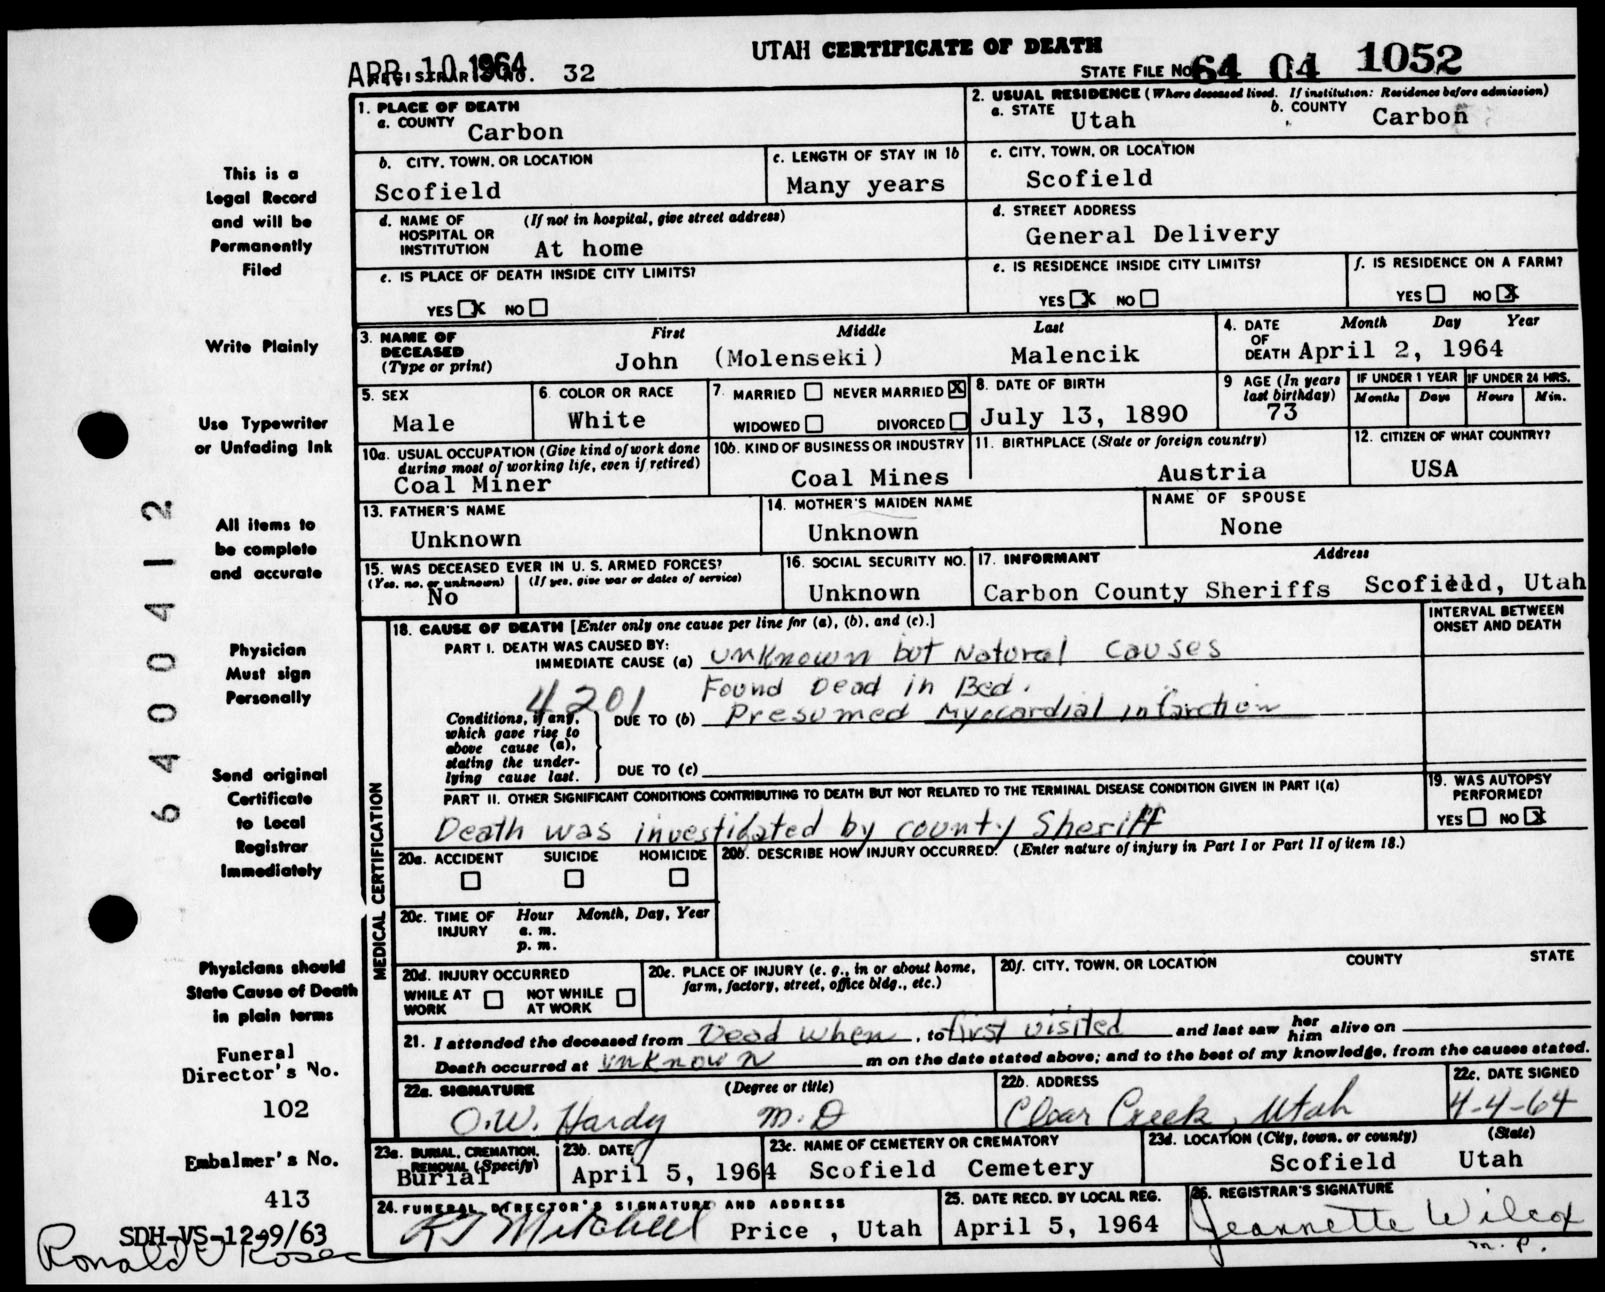 UTAH CERTIFICATE OF DEATH
APR 10 1964 REGISTRAR'S NO. 32
STATE FILE NO. 64 04 1052
1. PLACE OF DEATH
a. COUNTY Carbon
2. USUAL RESIDENCE (Where deceased lived. If institution: Residence before admission)
a. STATE Utah b. COUNTY Carbon
b. CITY, TOWN, OR LOCATION Scofield
c. LENGTH OF STAY IN 1b Many years
c. CITY, TOWN, OR LOCATION Scofield
d. NAME OF HOSPITAL OR INSTITUTION (If not in hospital, give street address) At home
d. STREET ADDRESS General Delivery
e. IS PLACE OF DEATH INSIDE CITY LIMITS?
YES X NO
e. IS RESIDENCE INSIDE CITY LIMITS?
YES X NO
f. IS RESIDENCE ON A FARM?
YES NO X
3. NAME OF DECEASED (Type or print)
First Middle Last
John (Molenseki) Malencik
4. DATE OF DEATH Month Day Year
April 2, 1964
5. SEX Male
6. COLOR OR RACE White
7. MARRIED NEVER MARRIED X
WIDOWED DIVORCED
8. DATE OF BIRTH July 13, 1890
9 AGE (In years last birthday) 73
IF UNDER 1 YEAR Months Days
IF UNDER 24 HRS. Hours Min.
10a. USUAL OCCUPATION (Give kind of work done during most of working life, even if retired)
Coal Miner
10b. KIND OF BUSINESS OR INDUSTRY
Coal Mines
11. BIRTHPLACE (State or foreign country)
Austria
12. CITIZEN OF WHAT COUNTRY?
USA
13. FATHER'S NAME Unknown
14. MOTHER'S MAIDEN NAME Unknown
NAME OF SPOUSE None
15. WAS DECEASED EVER IN U. S. ARMED FORCES?
(Yes, no, or unknown) (If yes, give war or dates of service)
No
16. SOCIAL SECURITY NO. Unknown
17. INFORMANT Address
Carbon County Sheriffs Scofield, Utah
MEDICAL CERTIFICATION
18. CAUSE OF DEATH [Enter only one cause per line for (a), (b), and (c).]
INTERVAL BETWEEN ONSET AND DEATH
PART I. DEATH WAS CAUSED BY:
IMMEDIATE CAUSE (a) unknown but Natural Causes
Found Dead in Bed.
4201
Conditions, if any, which gave rise to above cause (a), stating the underlying cause last.
DUE TO (b) Presumed Myocardial infarction
DUE TO (c)
PART II. OTHER SIGNIFICANT CONDITIONS CONTRIBUTING TO DEATH BUT NOT RELATED TO THE TERMINAL DISEASE CONDITION GIVEN IN PART I(a)
Death was investigated by county Sheriff
19. WAS AUTOPSY PERFORMED?
YES NO X
20a. ACCIDENT SUICIDE HOMICIDE
20b. DESCRIBE HOW INJURY OCCURRED. (Enter nature of injury in Part I or Part II of item 18.)
20c. TIME OF INJURY Hour Month, Day, Year
a. m.
p. m.
20d. INJURY OCCURRED
WHILE AT WORK NOT WHILE AT WORK
20e. PLACE OF INJURY (e. g., in or about home, farm, factory, street, office bldg., etc.)
20f. CITY, TOWN, OR LOCATION COUNTY STATE
21. I attended the deceased from Dead when, to first visited and last saw her him alive on
Death occurred at unknown m on the date stated above; and to the best of my knowledge, from the causes stated.
22a. SIGNATURE (Degree or title)
O.W. Hardy M.D
22b. ADDRESS
Clear Creek, Utah
22c. DATE SIGNED
4-4-64
23a. BURIAL, CREMATION, REMOVAL (Specify)
Burial
23b. DATE
April 5, 1964
23c. NAME OF CEMETERY OR CREMATORY
Scofield Cemetery
23d. LOCATION (City, town, or county) (State)
Scofield Utah
24. FUNERAL DIRECTOR'S SIGNATURE AND ADDRESS
RJ Mitchell Price , Utah
25. DATE RECD. BY LOCAL REG.
April 5, 1964
26. REGISTRAR'S SIGNATURE
Jeannette Wilcox
m. p.
This is a
Legal Record
and will be
Permanently
Filed
Write Plainly
Use Typewriter
or Unfading Ink
All items to
be complete
and accurate
Physician
Must sign
Personally
Send original
Certificate
to Local
Registrar
immediately
Physicians should
State Cause of Death
in plain terms
Funeral
Director's No.
102
Embalmer's No.
413
SDH-VS-12-9/63
Ronald V Rosec
6400412